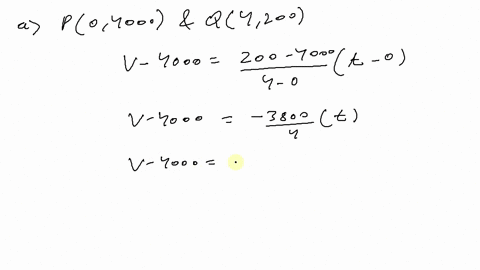 a) P(0,4000) & Q(4,200)
V-4000 = 200-4000/4-0 (t-0)
V-4000 = -3800/4 (t)
V-4000 =